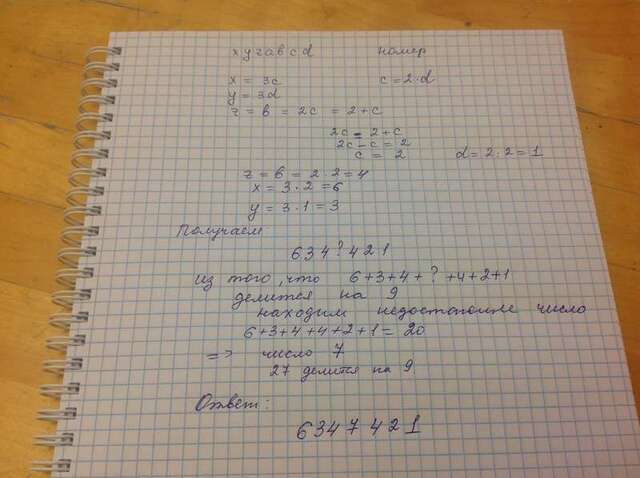 x y z a b c d номер
x = 3c c = 2·d
y = 3d
z = b = 2c = 2+c
2c = 2+c
2c-c = 2
c = 2 d = 2:2 = 1
z = b = 2·2 = 4
x = 3·2 = 6
y = 3·1 = 3
Получаем
634?421
из того, что 6+3+4+?+4+2+1
делится на 9
находим недостающие число
6+3+4+4+2+1 = 20
=> число 7
27 делится на 9.
Ответ:
6347421